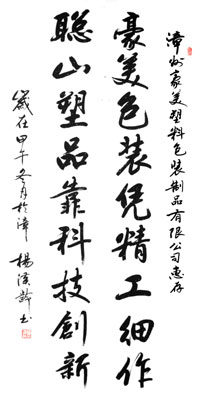 漳州豪美塑料包装制品有限公司惠存
豪美包装凭精工细作
聪山塑品靠科技创新
岁在甲午冬月於漳 杨汉龄书